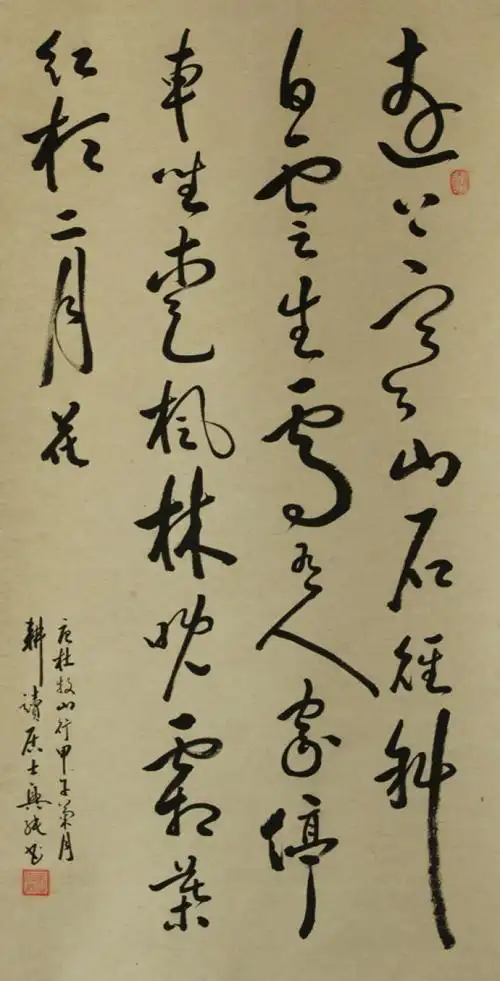 遠上寒山石徑斜
白雲生處有人家停
車坐愛楓林晚霜葉
紅於二月花
唐杜牧山行甲子菊月
耕讀居士興书